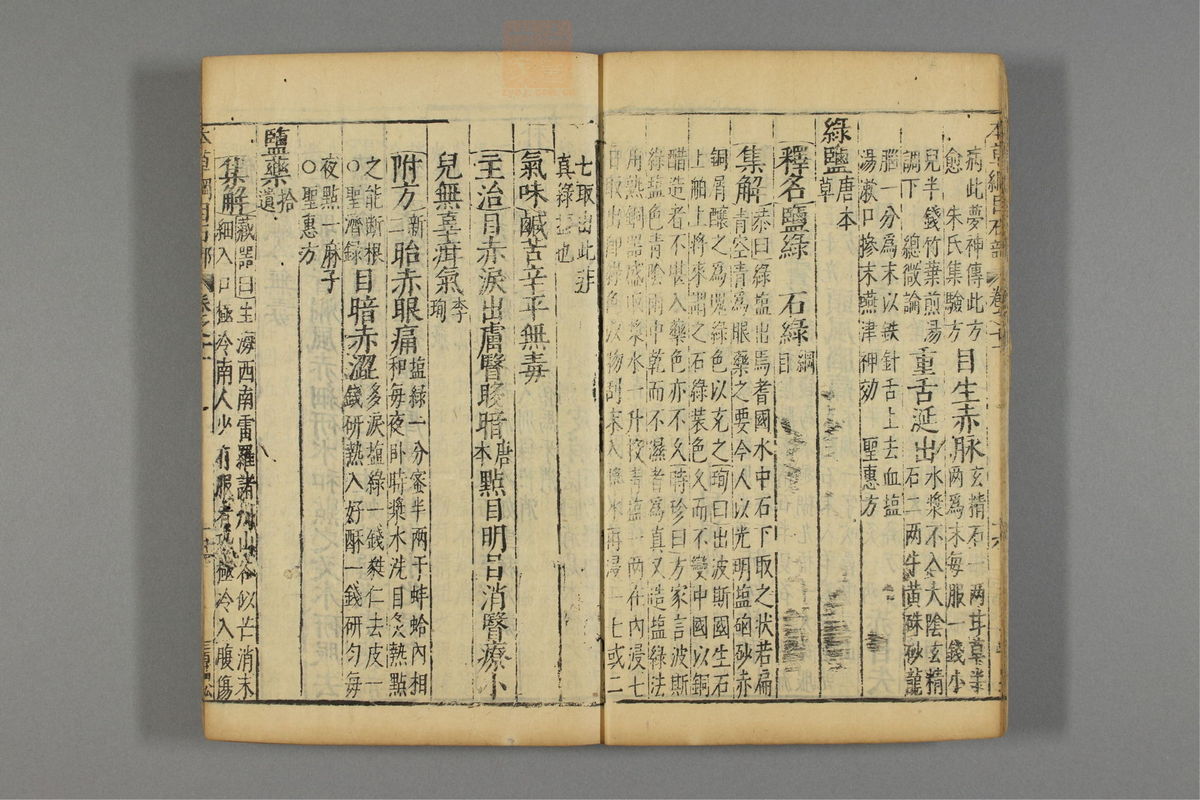 病此夢神傳此方
愈　朱氏集驗方
目生赤脉
玄精石一兩甘草半
兩爲末每服一錢小
兒半錢竹葉煎湯
調下　總微論
重舌涎出
水漿不入太陰玄精
石二兩牛黃硃砂龍
腦一分爲末以鉄針舌上去血塩
湯漱口摻末燕津神効　聖惠方
綠鹽
唐本
草
釋名鹽綠　石綠
綱
目
集解
恭曰綠塩出焉耆國水中石下取之状若扁
青空青爲眼藥之要今人以光明塩硇砂赤
銅屑釀之爲塊綠色以充之珣曰出波斯國生石
上舶上將來謂之石綠裝色久而不變中國以銅
醋造者不堪入藥色亦不久時珍曰方家言波斯
綠塩色青陰雨中乾而不濕者爲真又造塩綠法
用熟銅器盛取漿水一升投青塩一兩在內浸七
日取出即綠色以物刮末入漿水再浸一七或二
七取出此非
真綠塩也
氣味鹹苦辛平無毒
主治目赤淚出膚瞖眵暗
唐
本
點目明目消瞖療小
兒無辜疳氣
李
珣
附方
新
二
胎赤眼痛
塩綠一分蜜半兩于蚌蛤內相
和每夜卧時漿水洗目炙熱點
之能断根
○聖濟錄
目暗赤澀
多淚塩綠一錢蕤仁去皮一
錢研熱入好酥一錢研勻每
夜點一麻子
○聖惠方
鹽藥
拾
遺
集解
藏器曰生海西南雷羅諸州山谷似芒消末
細入口極冷南人少有服者恐極冷入腹傷